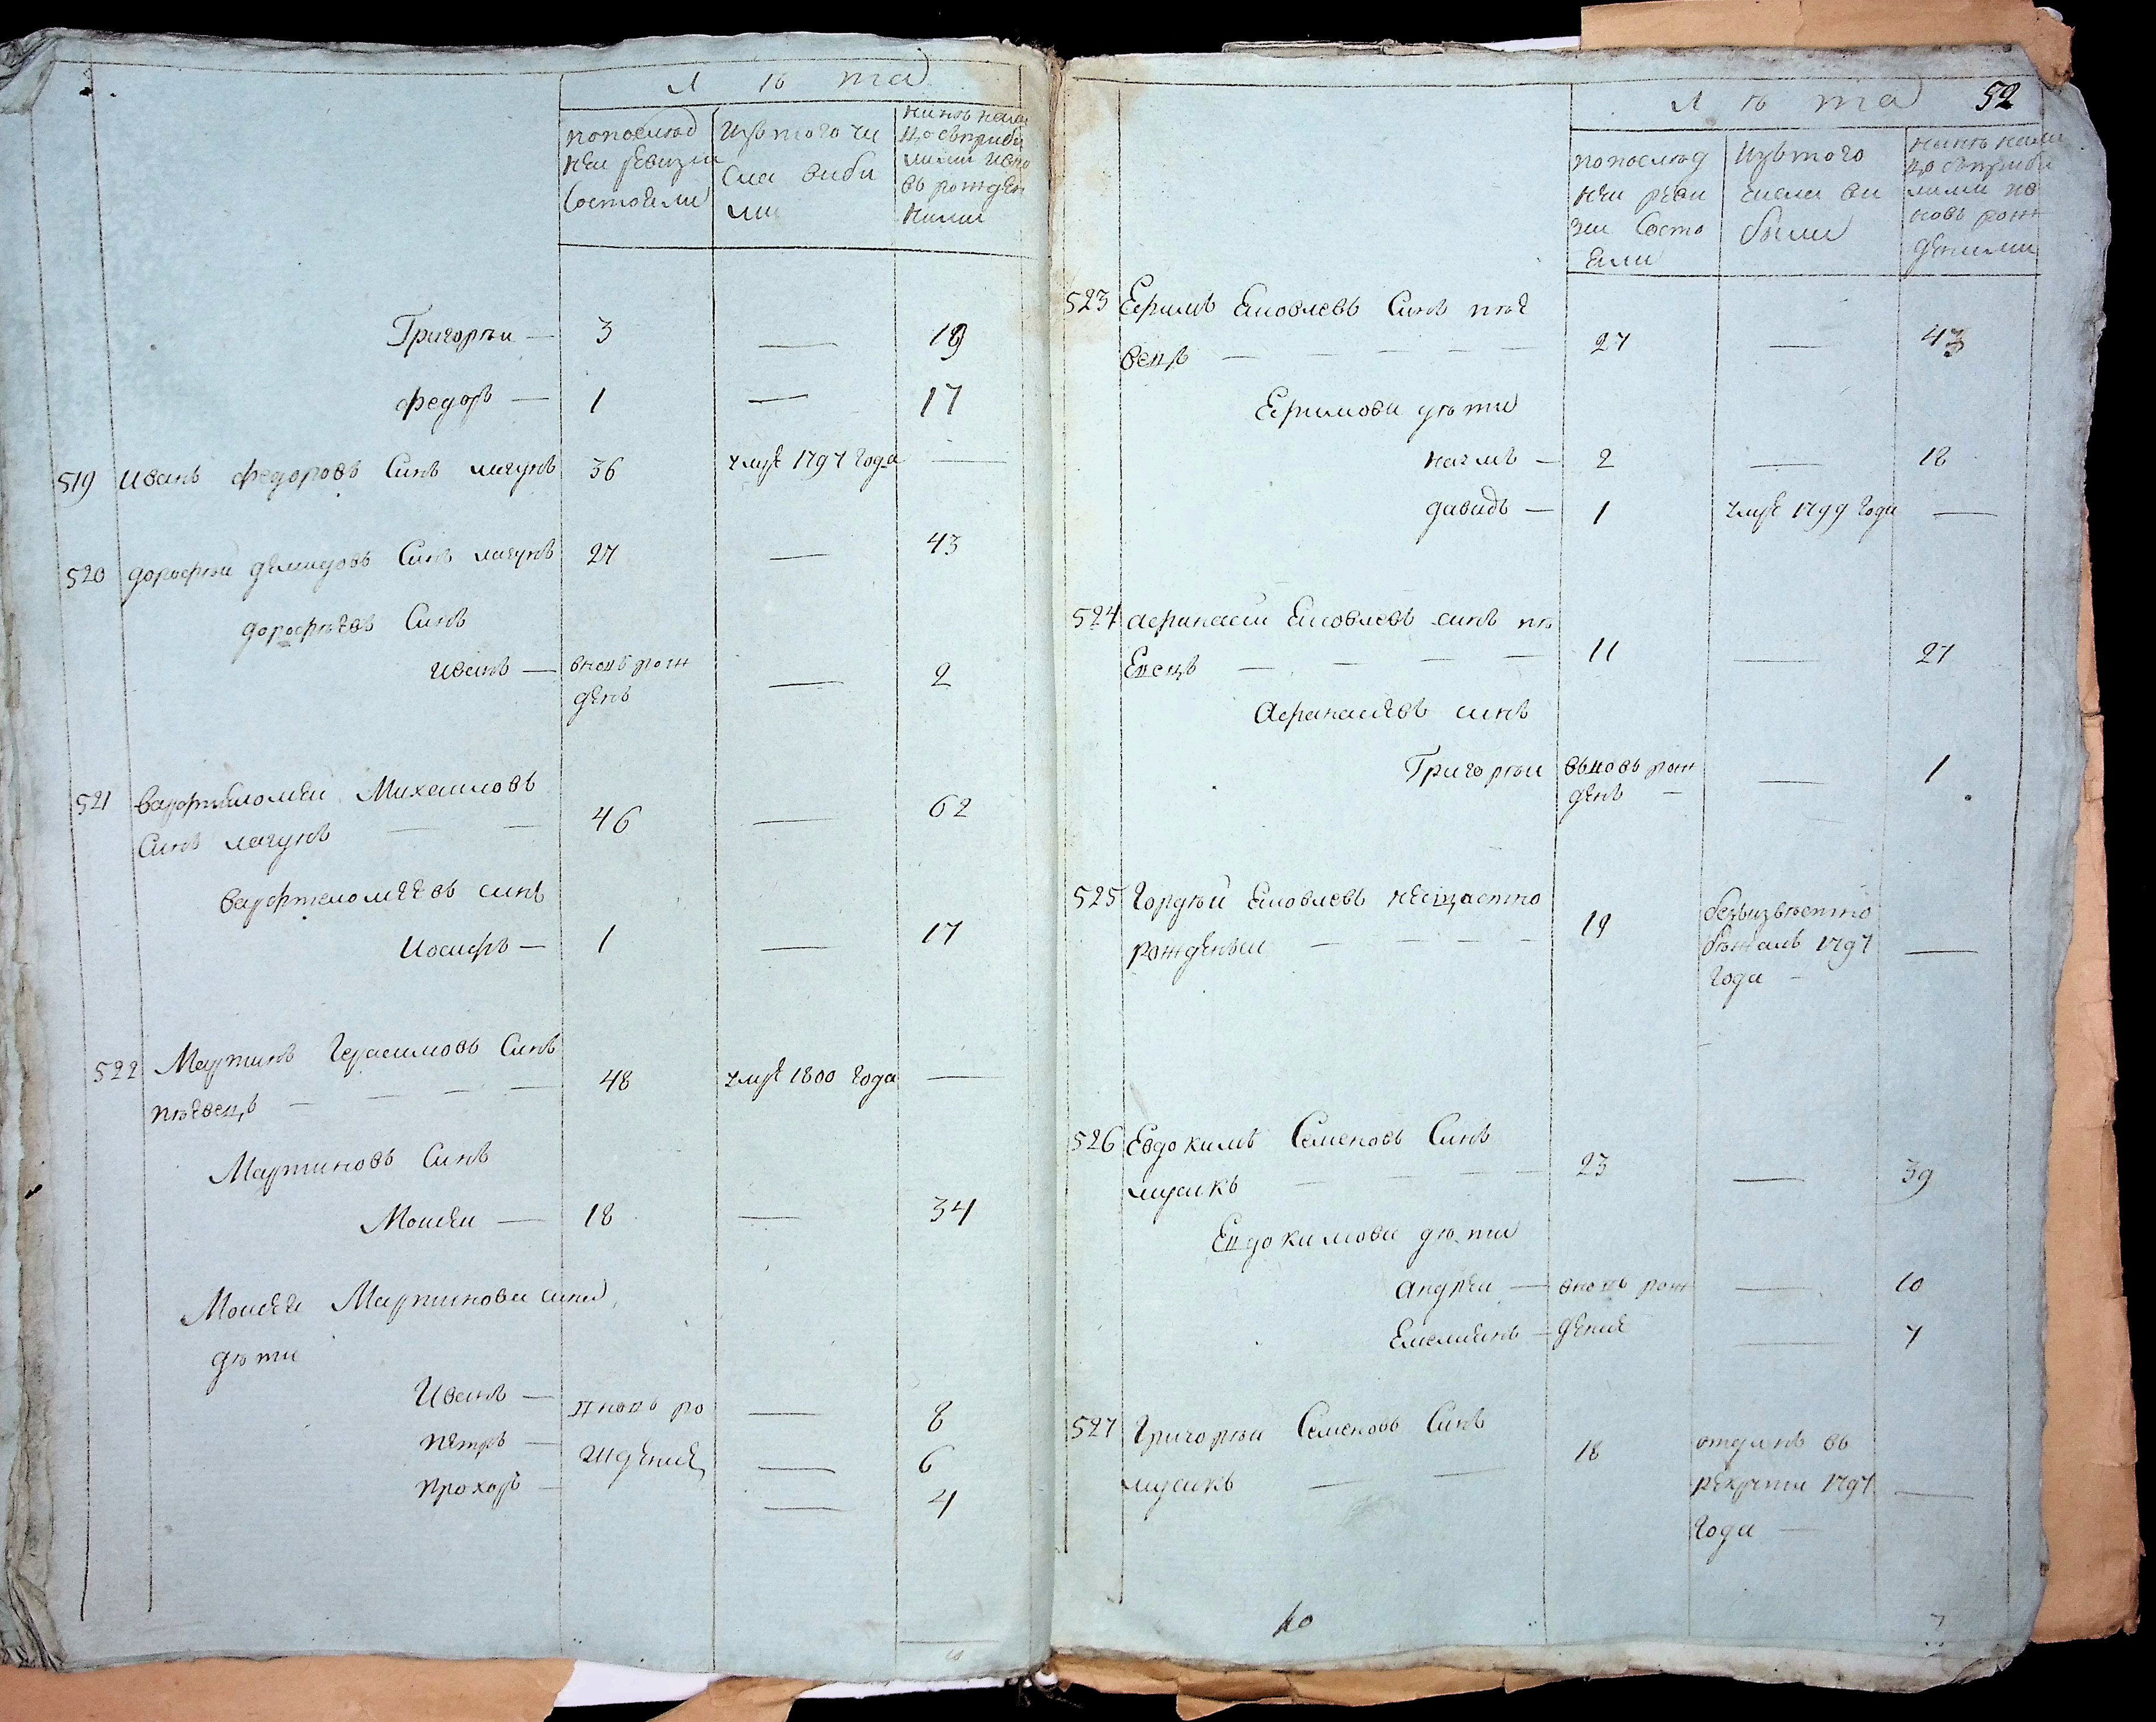 лѣта
попослѣд
ней ревизіи
состояли
изътого чи
сла выбы
ли
нынѣ нали
цо съприбы
лыми ино
въ рожден
ными
Григорѣй — 3 — 19
Федоръ — 1 — 17
519 Иванъ Федоровъ Синъ лагунъ 36 умре 1797 года —
520 дорофѣй демидовъ Синъ лагунъ 27 — 43
дорофѣевъ Синъ
иванъ — вновь рож
денъ — 2
521 варфтоломей Михаиловъ
Синъ лагунъ — — 46 — 62
варфтоломѣевъ синъ
Иосифъ — 1 — 17
522 Мартинъ Герасимовъ Синъ
пѣевецъ — — — — 48 умре 1800 года —
Мартиновъ Синъ
Моисей — 18 — 34
Моисея Мартинова сина
дѣти
Иванъ — вновь ро — 8
петръ — ждение — 6
прохоръ — — 4
лѣта 52
попослѣд
ней реви
зии Состо
яли
Изътого
числа ви
были
нынѣ нали
цо съприбы
лыми ив
новь рож
деними
523 Ефимъ Яковлевъ Синъ пѣе
вецъ — — — — — 27 — 43
Ефимови дѣти
наумъ — 2 — 18
давидъ — 1 умре 1799 года —
524 афанасий Яковлевъ синъ пѣ
евецъ — — — — 11 — 27
Афанасиевъ синъ
Григорѣй вьновь рож
денъ — — 1
525 Гордѣй Яковлевъ нещастно
рожденъй — — — — 19 безъизвѣстно
бѣжалъ 1797
года — —
526 Евдокимъ Семеновъ Синъ
мусикъ — — — 23 — 39
Евдокимови дѣти
андрей — вновь рож — 10
Емелиянъ — дение — 7
527 Григорѣй Семеновъ Синъ
мусикъ — — 18 отданъ въ
рекрути 1797
года — —
10